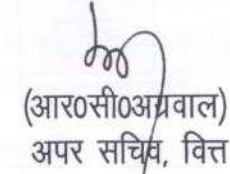 (आर0सी0अग्रवाल)
अपर सचिव, वित्त